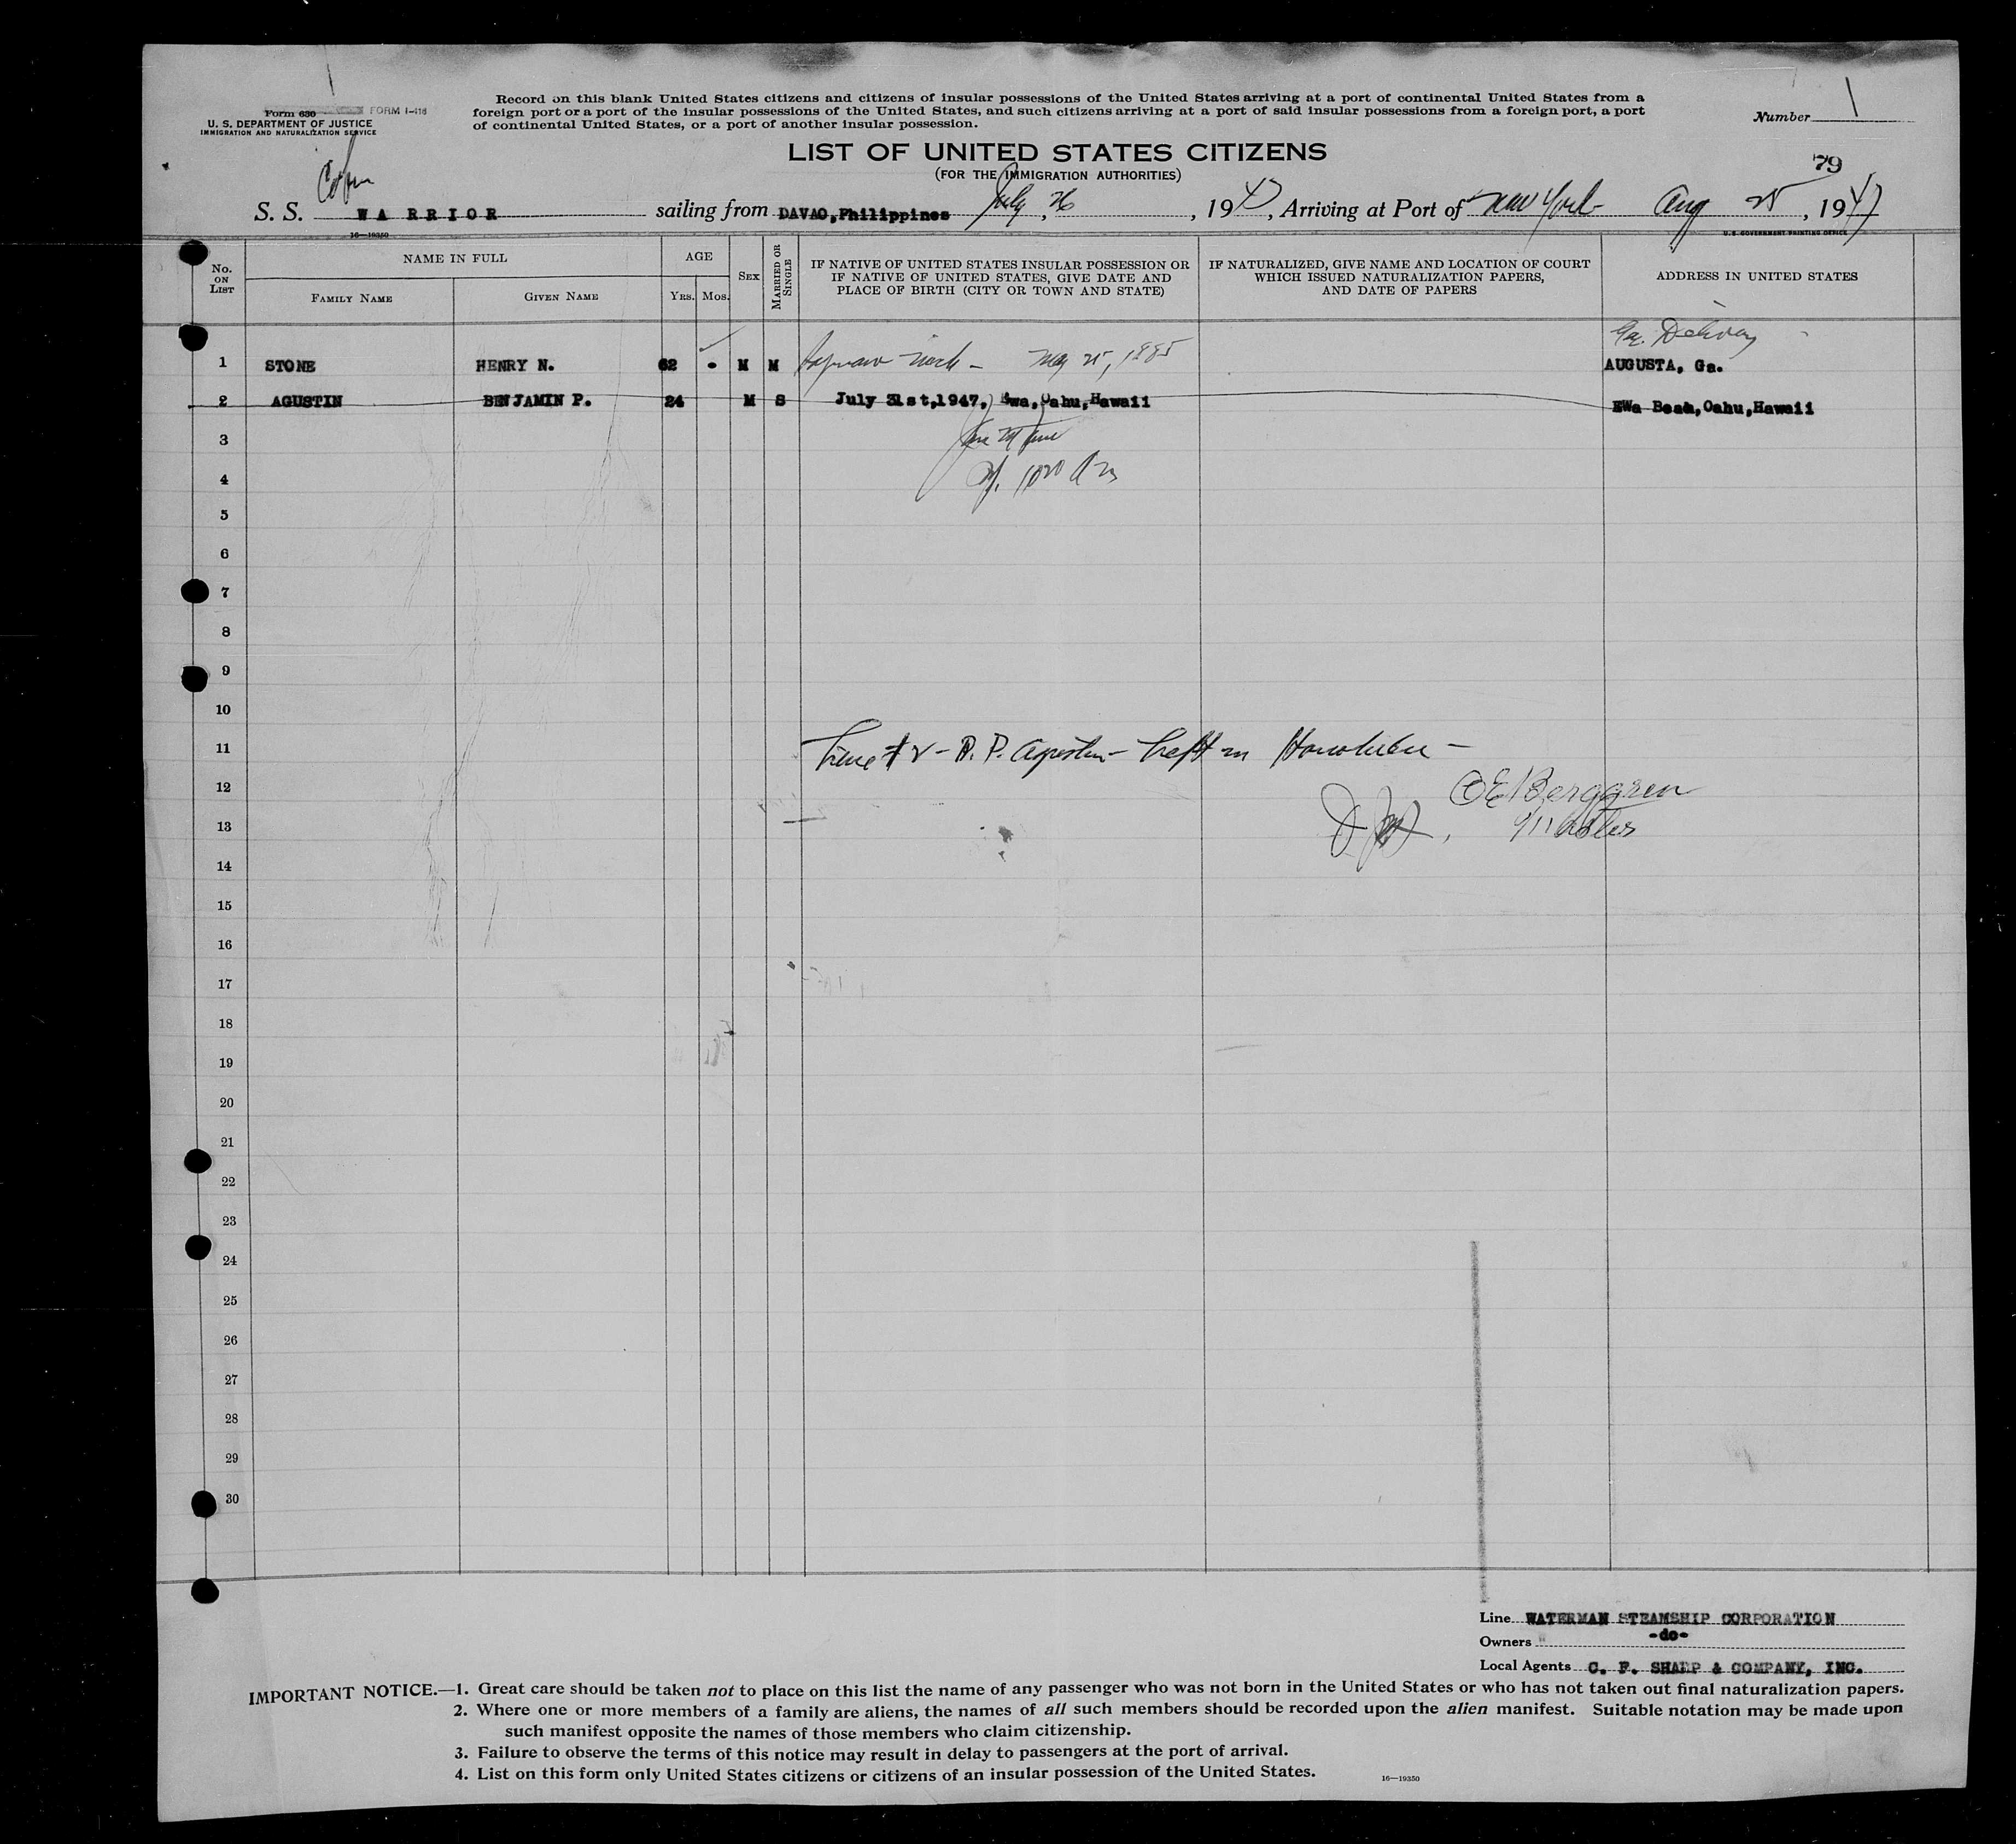 Form 630 FORM I-418
U. S. DEPARTMENT OF JUSTICE
IMMIGRATION AND NATURALIZATION SERVICE
Record on this blank United States citizens and citizens of insular possessions of the United States arriving at a port of continental United States from a
foreign port or a port of the insular possessions of the United States, and such citizens arriving at a port of said insular possessions from a foreign port, a port
of continental United States, or a port of another insular possession.
Number 1
LIST OF UNITED STATES CITIZENS
(FOR THE IMMIGRATION AUTHORITIES)
79
S. S. WARRIOR sailing from DAVAO, Philippines July, 26, 1947, Arriving at Port of New York Aug 25, 1947
16—19350
U.S. GOVERNMENT PRINTING OFFICE
No. ON LIST
NAME IN FULL
FAMILY NAME
GIVEN NAME
AGE
YRS. MOS.
SEX
MARRIED OR SINGLE
IF NATIVE OF UNITED STATES INSULAR POSSESSION OR
IF NATIVE OF UNITED STATES, GIVE DATE AND
PLACE OF BIRTH (CITY OR TOWN AND STATE)
IF NATURALIZED, GIVE NAME AND LOCATION OF COURT
WHICH ISSUED NATURALIZATION PAPERS,
AND DATE OF PAPERS
ADDRESS IN UNITED STATES
1 STONE HENRY N. 62 M M May 25, 1885 AUGUSTA, Ga.
2 AGUSTIN BENJAMIN P. 24 M S July 31st,1947, Ewa, Oahu, Hawaii EWa Beach, Oahu, Hawaii
3
4
5
6
7
8
9
10
11 Line # 2 - B. P. Agustin - Left in Honolulu -
12 OE Berggren
13 Master
14
15
16
17
18
19
20
21
22
23
24
25
26
27
28
29
30
Line WATERMAN STEAMSHIP CORPORATION
Owners -do-
Local Agents C. F. SHARP & COMPANY, INC.
IMPORTANT NOTICE.—1. Great care should be taken not to place on this list the name of any passenger who was not born in the United States or who has not taken out final naturalization papers.
2. Where one or more members of a family are aliens, the names of all such members should be recorded upon the alien manifest. Suitable notation may be made upon
such manifest opposite the names of those members who claim citizenship.
3. Failure to observe the terms of this notice may result in delay to passengers at the port of arrival.
4. List on this form only United States citizens or citizens of an insular possession of the United States.
16—19350